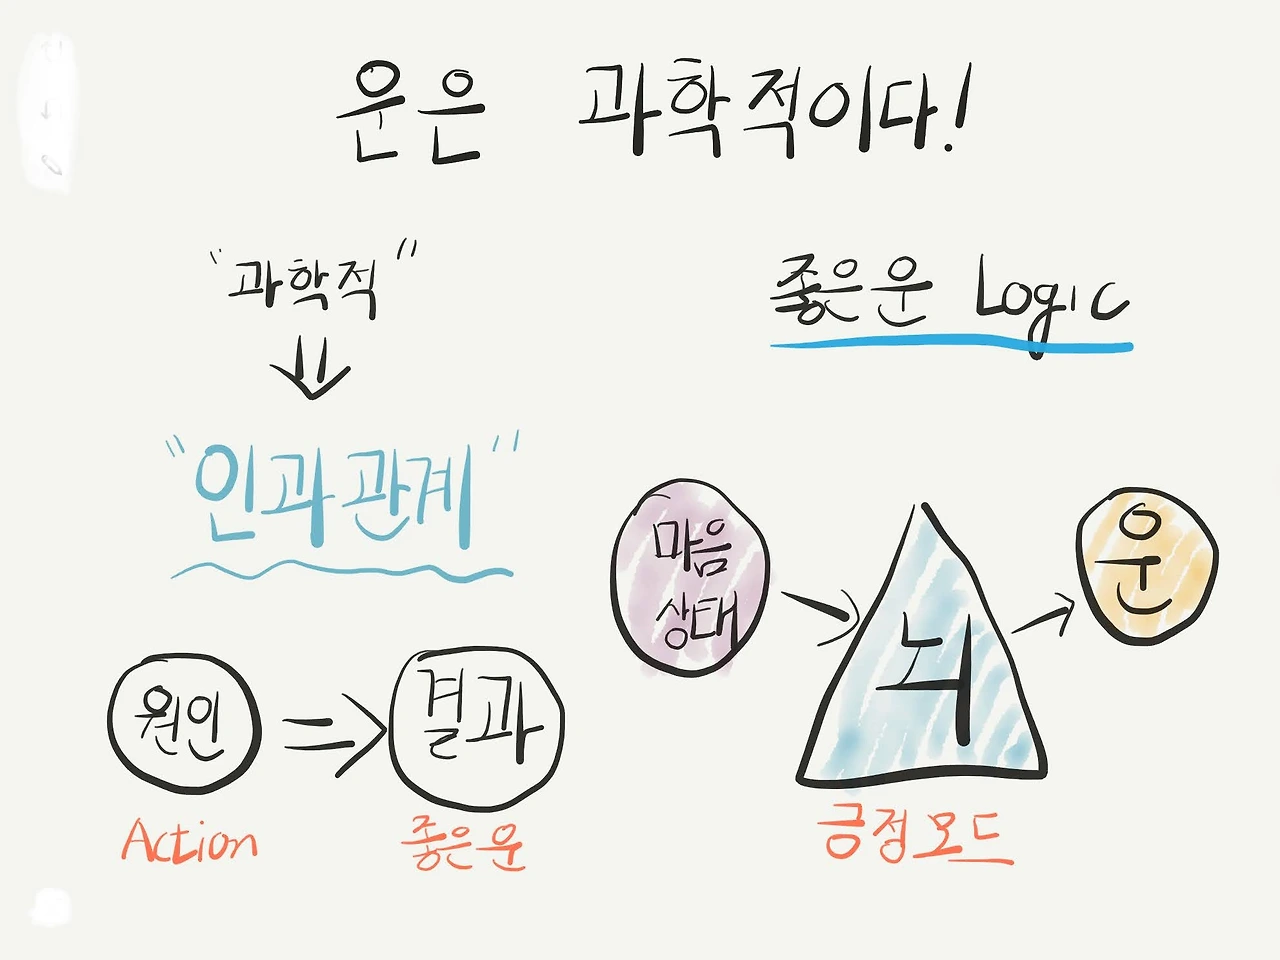 운은 과학적이다!
"과학적"
"인과관계"
원인 결과
Action 좋은운
좋은운 Logic
마음
상태
뇌
운
긍정모드